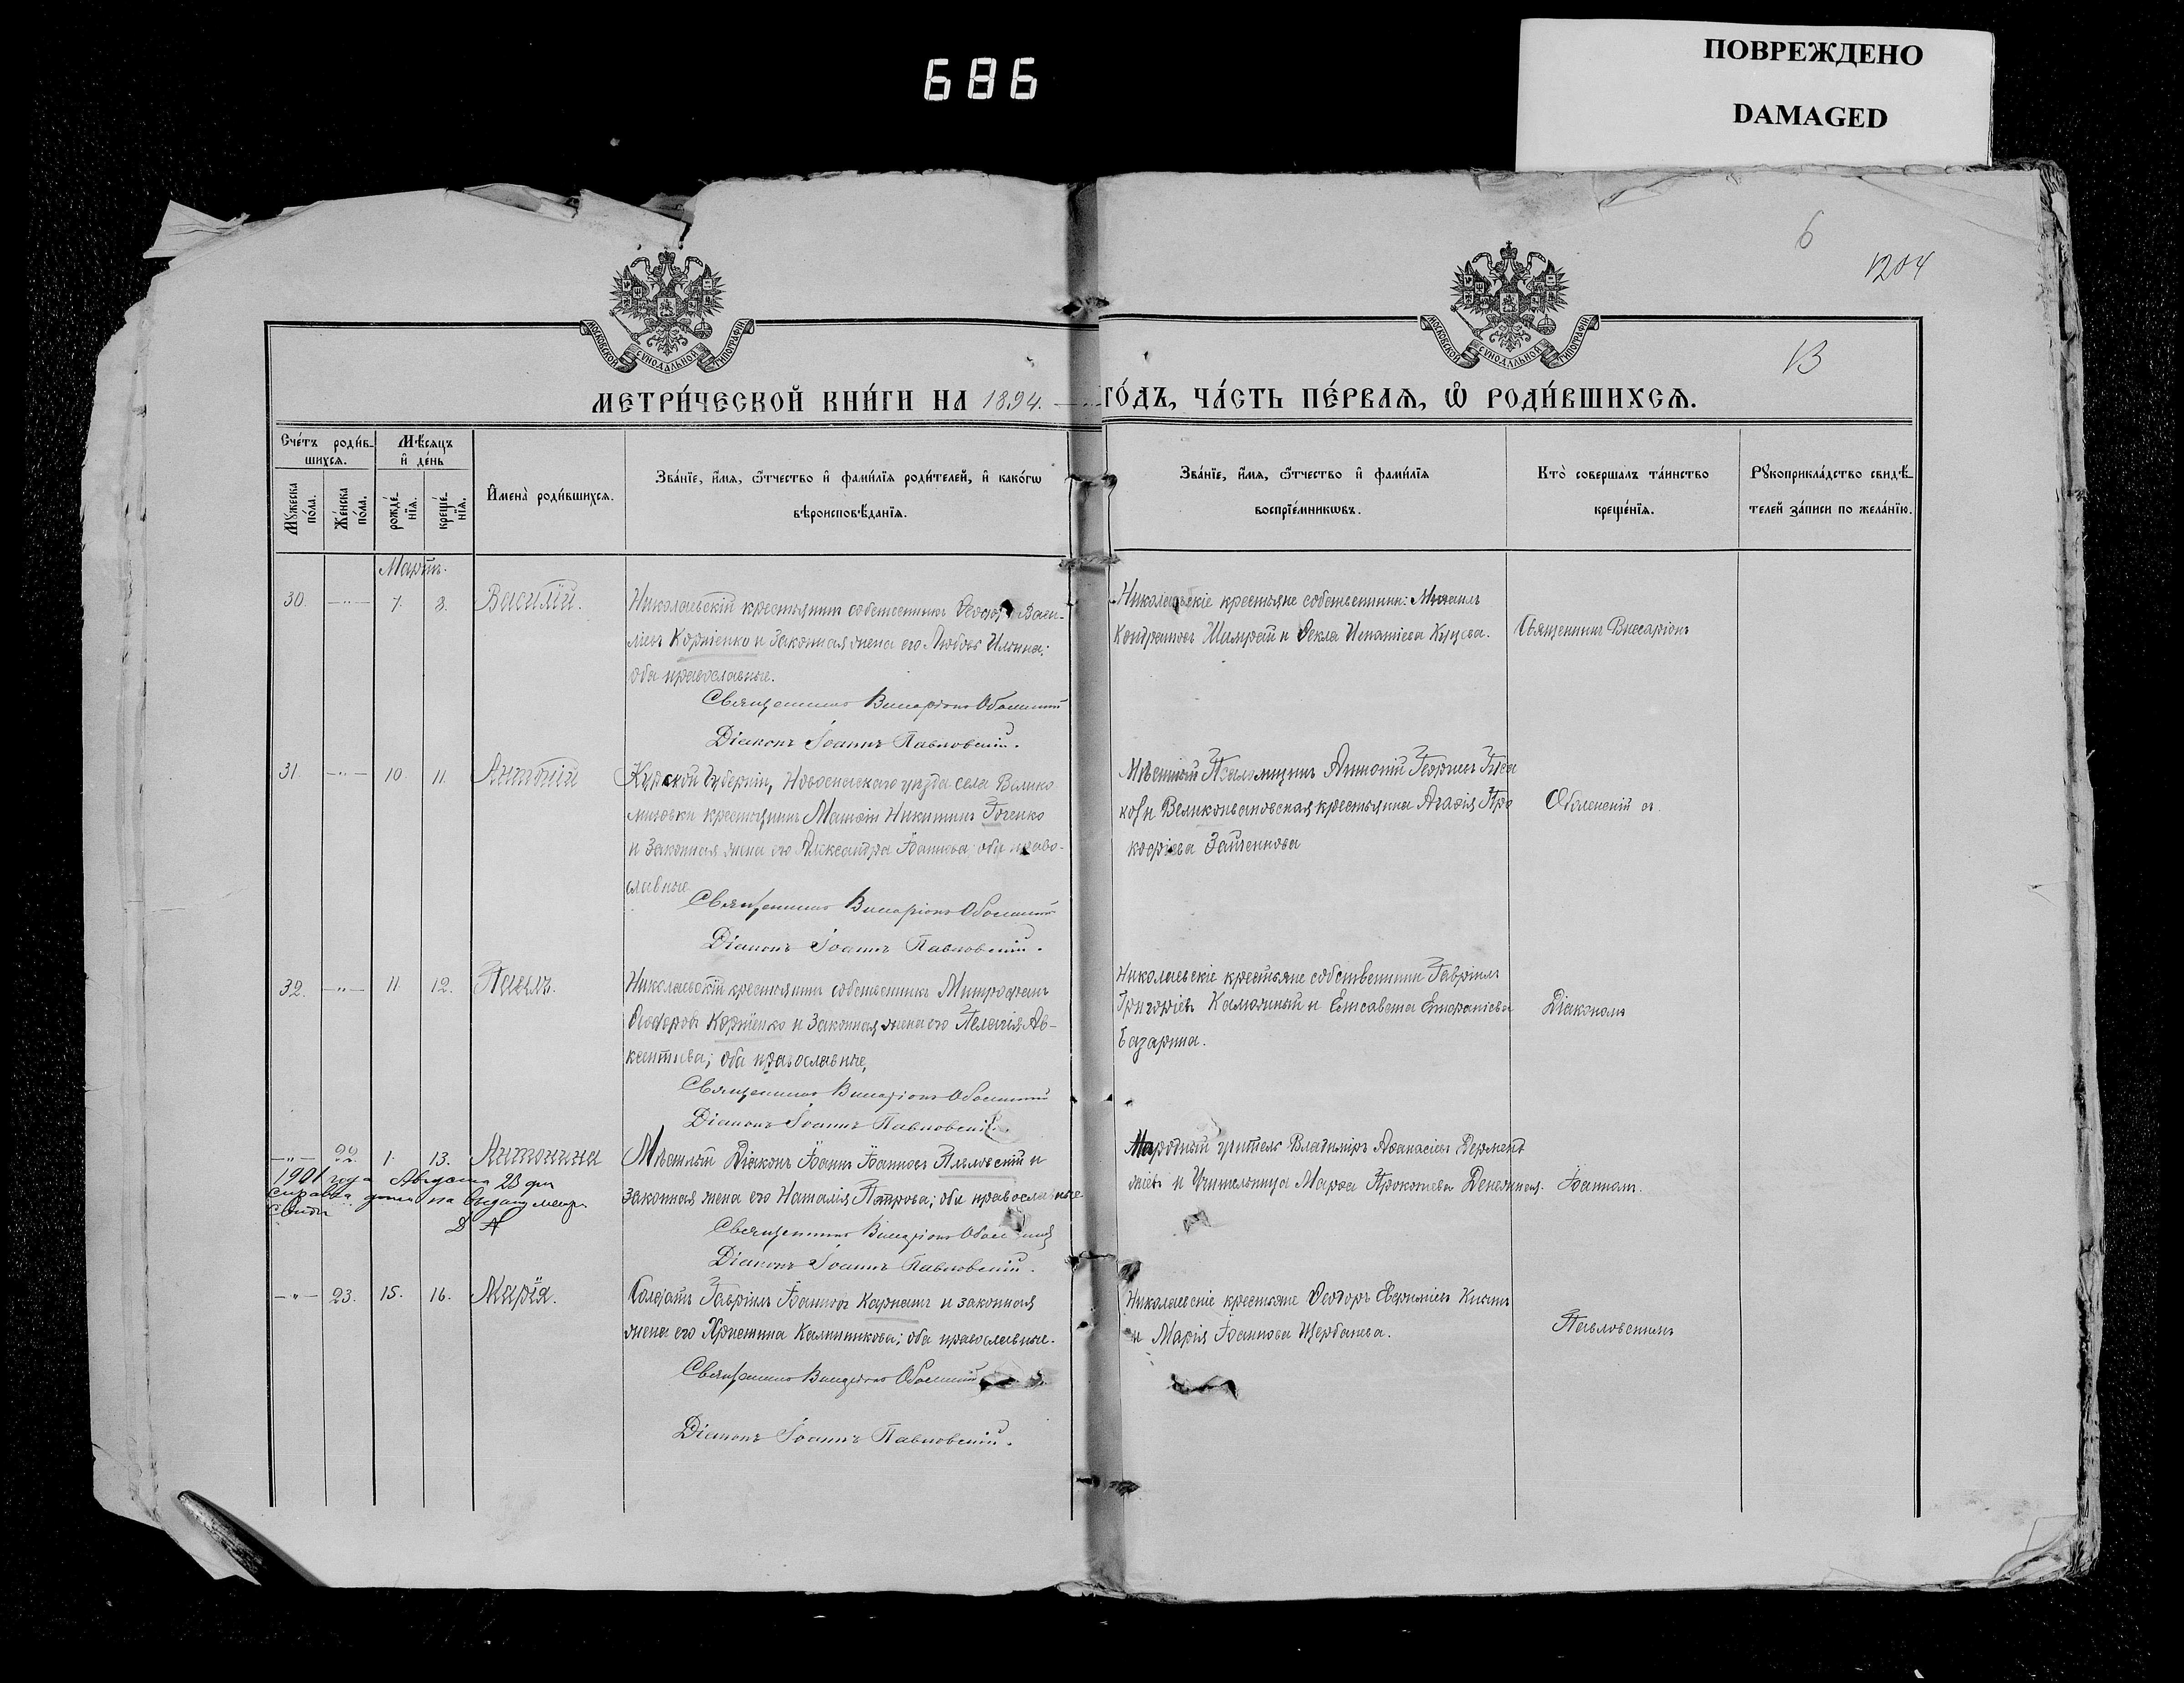 ПОВРЕЖДЕНО
DAMAGED
686
6
1204
13
МОСКОВСКОЙ СУНОДАЛЬНОЙ ТИПОГРАФІИ
МОСКОВСКОЙ СУНОДАЛЬНОЙ ТИПОГРАФІИ
МЕТРИ́ЧЕСКОЙ КНИ́ГИ НА 1894. ГО́ДЪ, ЧА́СТЬ ПЕ́РВАЯ, Ѡ РОДИ́ВШИХСЯ.
Сче́тъ роди́в-
шихся.
Мѣ́сяцъ
и де́нь
Мꙋ́жеска
по́ла.
Же́нска
по́ла.
рожде́-
нїя.
креще́-
нїя.
Имена̀ роди́вшихся.
Зва́нїе, и́мя, ѻ́тчество и фами́лїя роди́телей, и како́гѡ
вѣроисповѣ́данїя.
Зва́нїе, и́мя, ѻ́тчество и фами́лїя
воспрїе́мникѡвъ.
Кто̀ совершалъ та́инство
креще́нїя.
Рꙋкоприкла́дство свидѣ́-
телей за́писи по жела́нїю.
Мартъ.
30. -"- 7. 8. Василій.
Николаевскій крестьянинъ собственникъ Ѳеодоръ Васи-
ліевъ Корніенко и законная жена его Любовь Ильина;
оба православные.
Священникъ Виссаріонъ Оболенскій
Діаконъ Іоаннъ Павловскій.
Николаевскіе крестьяне собственники: Михаилъ
Кондратовъ Шамрай и Ѳекла Игнатіева Куцева.
Священникъ Виссаріонъ
31. -"- 10. 11. Антоній
Курской Губерніи, Новооскольскаго уѣзда села Велико
михаовки крестьянинъ Матѳій Никитинъ
и законная жена его Александра Іоаннова; оба право-
славные.
Священникъ Виссаріонъ Оболенскій
Діаконъ Іоаннъ Павловскій.
Мѣстный Псаломщикъ Антоній Георгіевъ
и крестьянка Агафія Про
кофіева
Оболенскій съ
32. -"- 11. 12. Павелъ.
Николаевскій крестьянинъ собственникъ Митрофанъ
Ѳеодоровъ Корніенко и законная жена его Пелагія Ав-
ксентіева; оба православные,
Священникъ Виссаріонъ Оболенскій
Діаконъ Іоаннъ Павловскій.
Николаевскіе крестьяне собственники Гавріилъ
Григоріевъ и Елисавета
Базарина.
Діакономъ
-"- 22. 1. 13. Антонина
1901 года Августа 23 дня
справка дана на выдачу метр.
Мѣстный Діаконъ Іоаннъ Іоанновъ Павловскій и
законная жена его Наталія Петрова; оба православные
Священникъ Виссаріонъ Оболенскій
Діаконъ Іоаннъ Павловскій.
Народный учитель Владиміръ Аѳанасіевъ
и Учительница Марѳа
Іоанномъ
-"- 23. 15. 16. Марія.
Солдатъ Гавріилъ Іоанновъ Карпатъ и законная
жена его Христина Калинникова; оба православные.
Священникъ Виссаріонъ Оболенскій
Діаконъ Іоаннъ Павловскій.
Николаевскіе крестьяне Ѳеодоръ
и Марія Іоаннова Щербакова.
Павловскимъ